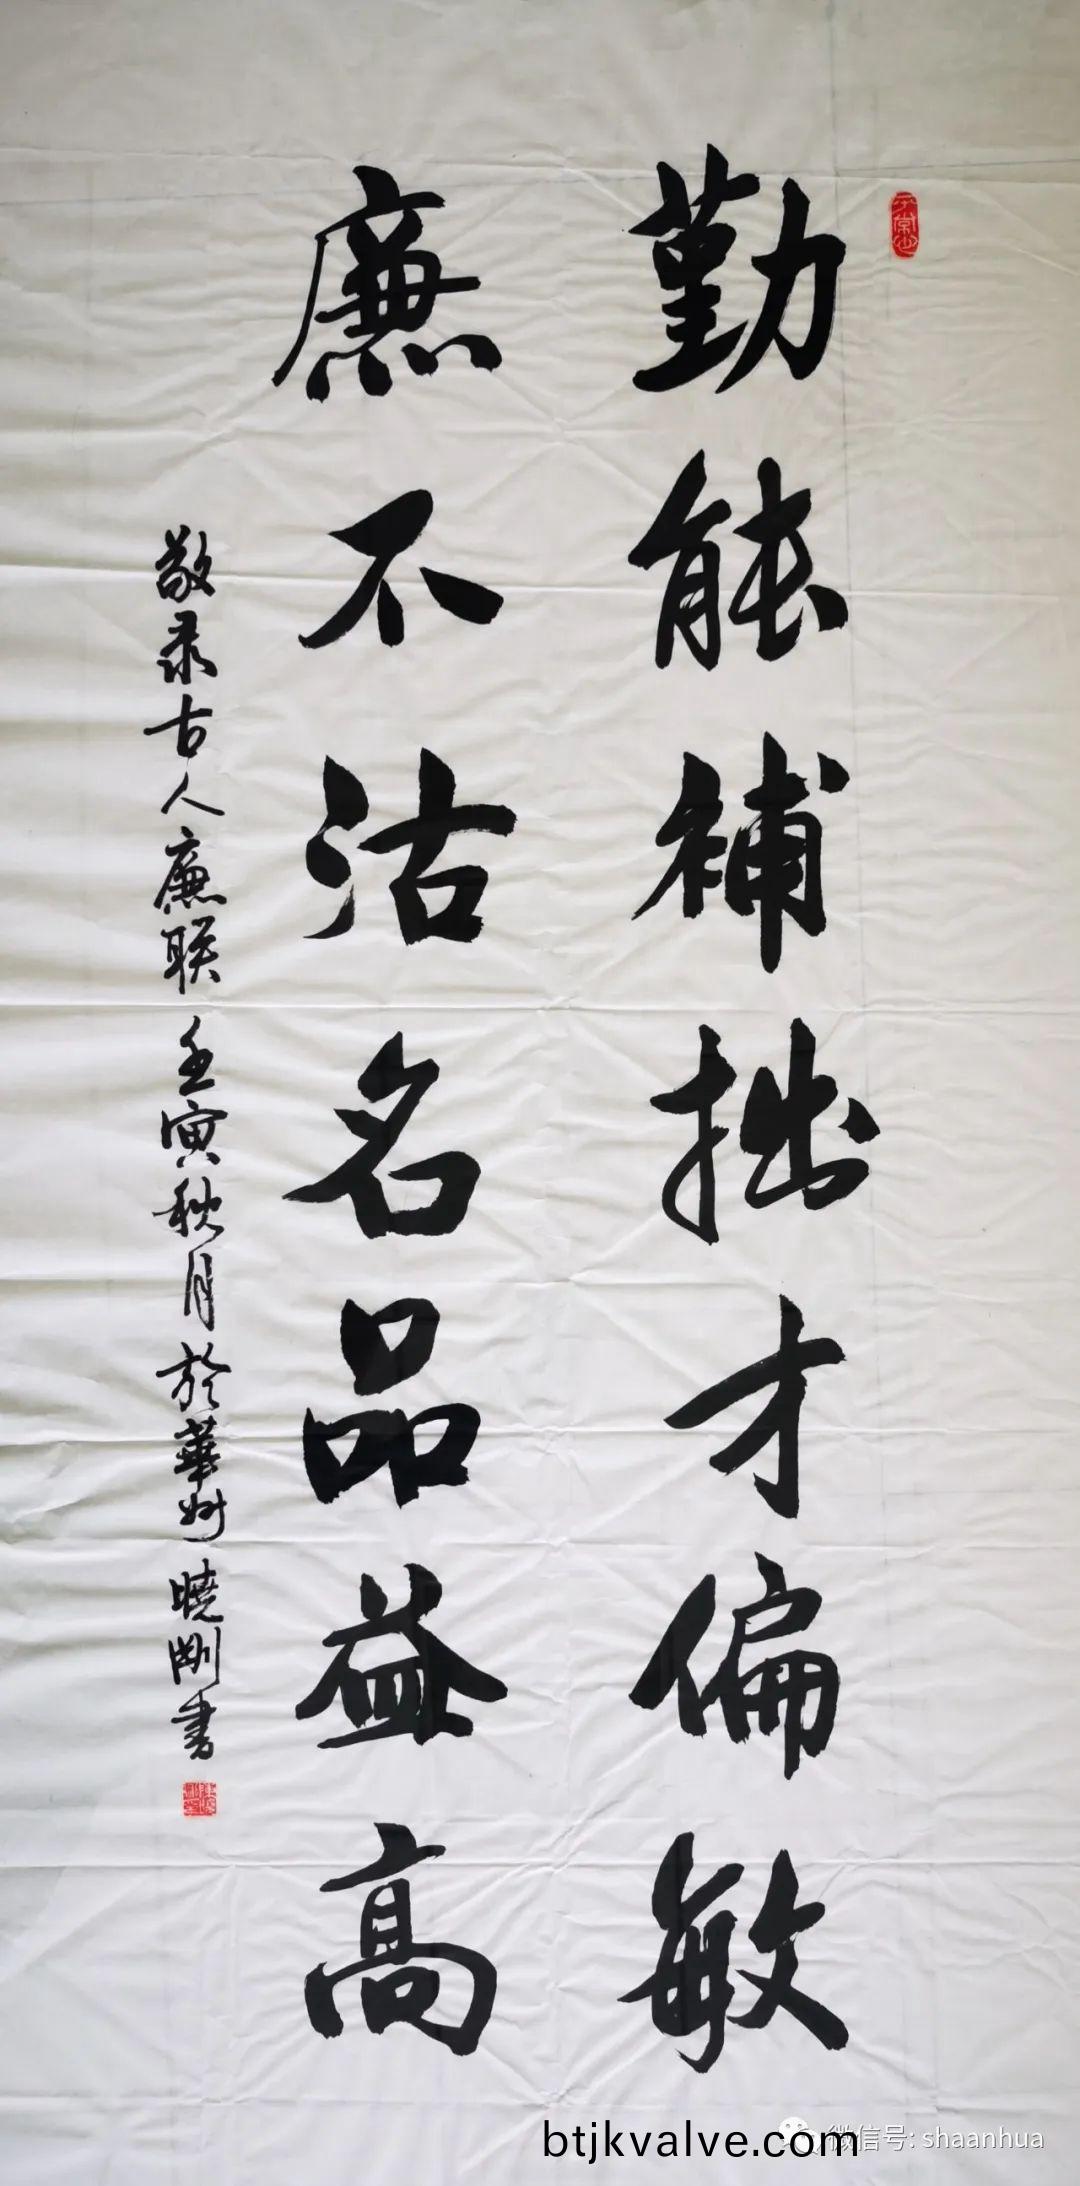 勤能補拙才偏敏
廉不沽名品益高
敬录古人廉联 壬寅秋月於華州 曉剛书
btjkvalve.com
微信号: shaanhua